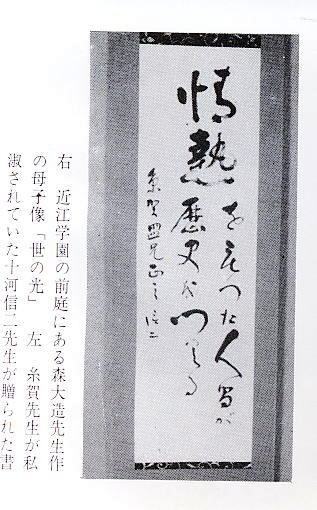 情熱をもつた人間が
歴史をつくる
糸賀盟兄正之 信二
右　近江学園の前庭にある森大造先生作
の母子像「世の光」　左　糸賀先生が私
淑されていた十河信二先生が贈られた書